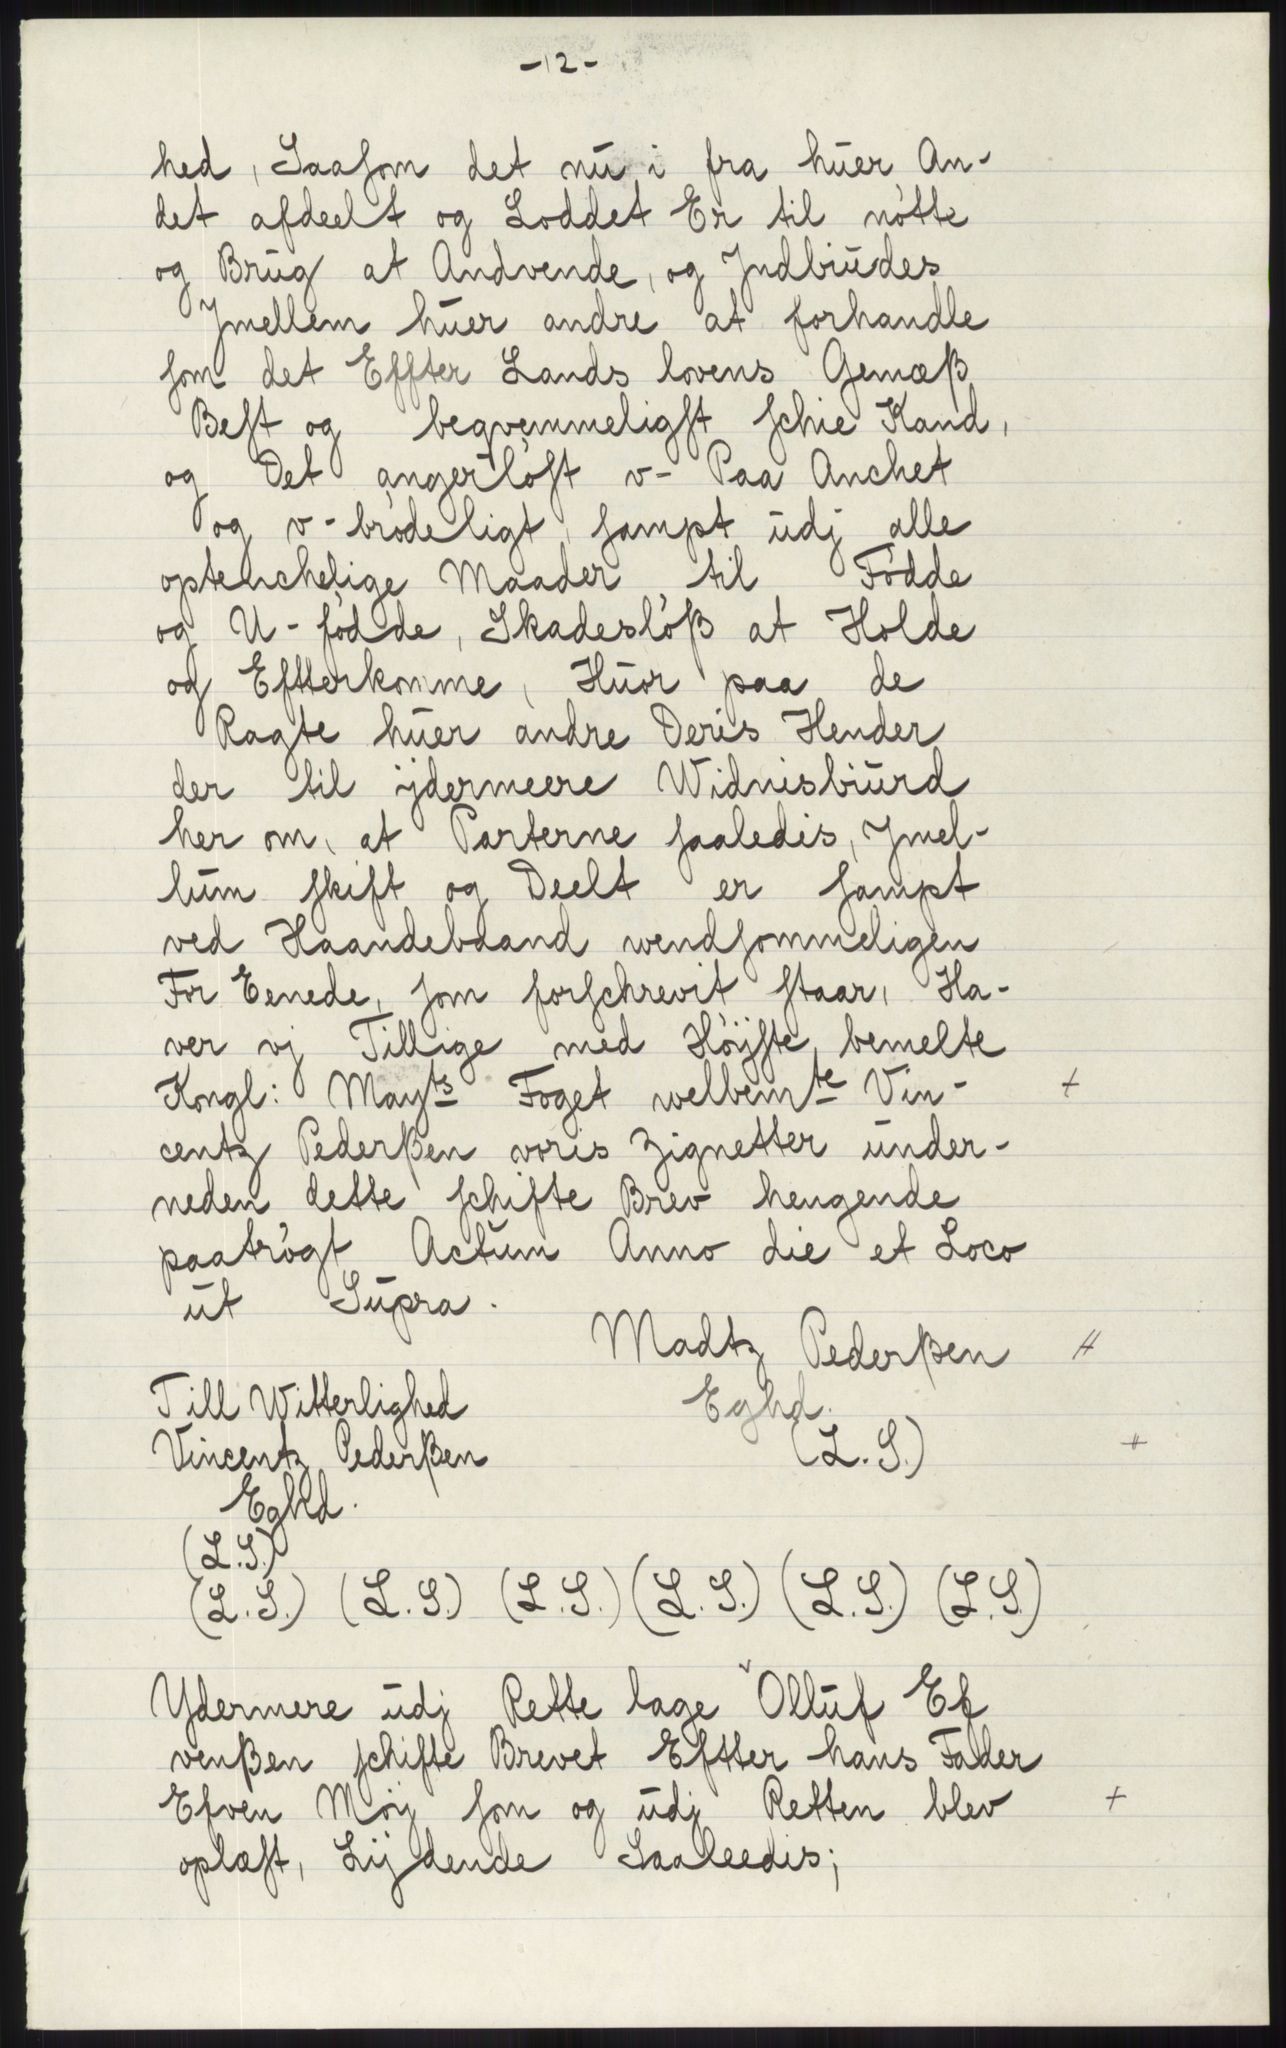 -12-
hed, Saasom det nu i fra huer An-
det afdeelt og Loddet Er til nøtte
og Brug at Andvende, og Jndbiudes
Jmellem huer andre at forhandle
som det Effter Lands lovens Gemæß
Best og begvemmeligst schie Kand,
og Det angerløst v- Paa Anchet
og v-brødeligt, sampt udj alle
optenchelige Maader til Fødde
og U-fødde, Skadesløß at Holde
og Eftterkomme, Huor paa de
Ragte huer andre Deris Hender
der til ijdermeere Widnisbiurd
her om, at Parterne saaledis, Jmel-
lum skift og Deelt er sampt
ved Haandebaand wendsommeligen
For Eenede, som forschrevit staar, Ha-
ver vj Tillige med Høijste bemelte
Kongl: Mayts Foget welbemte Vin- +
centz Pederßen voris Zignetter under-
neden dette schifte Brev hengende
paatrøgt Actum Anno die et Loco
ut Supra.
Madtz Pederßen #
Eghd.
(L.S.) +
Till Witterlighed
Vincentz Pederßen
Eghd.
(L.S.)
(L.S.) (L.S.) (L.S.) (L.S.) (L.S.) (L.S.)
Ydermere udj Rette lage Olluf Ef
venßen schifte Brevet Eftter hans Fader
Efven Møij som og udj Retten blev +
oplæst, Lijdende Saaleedis;